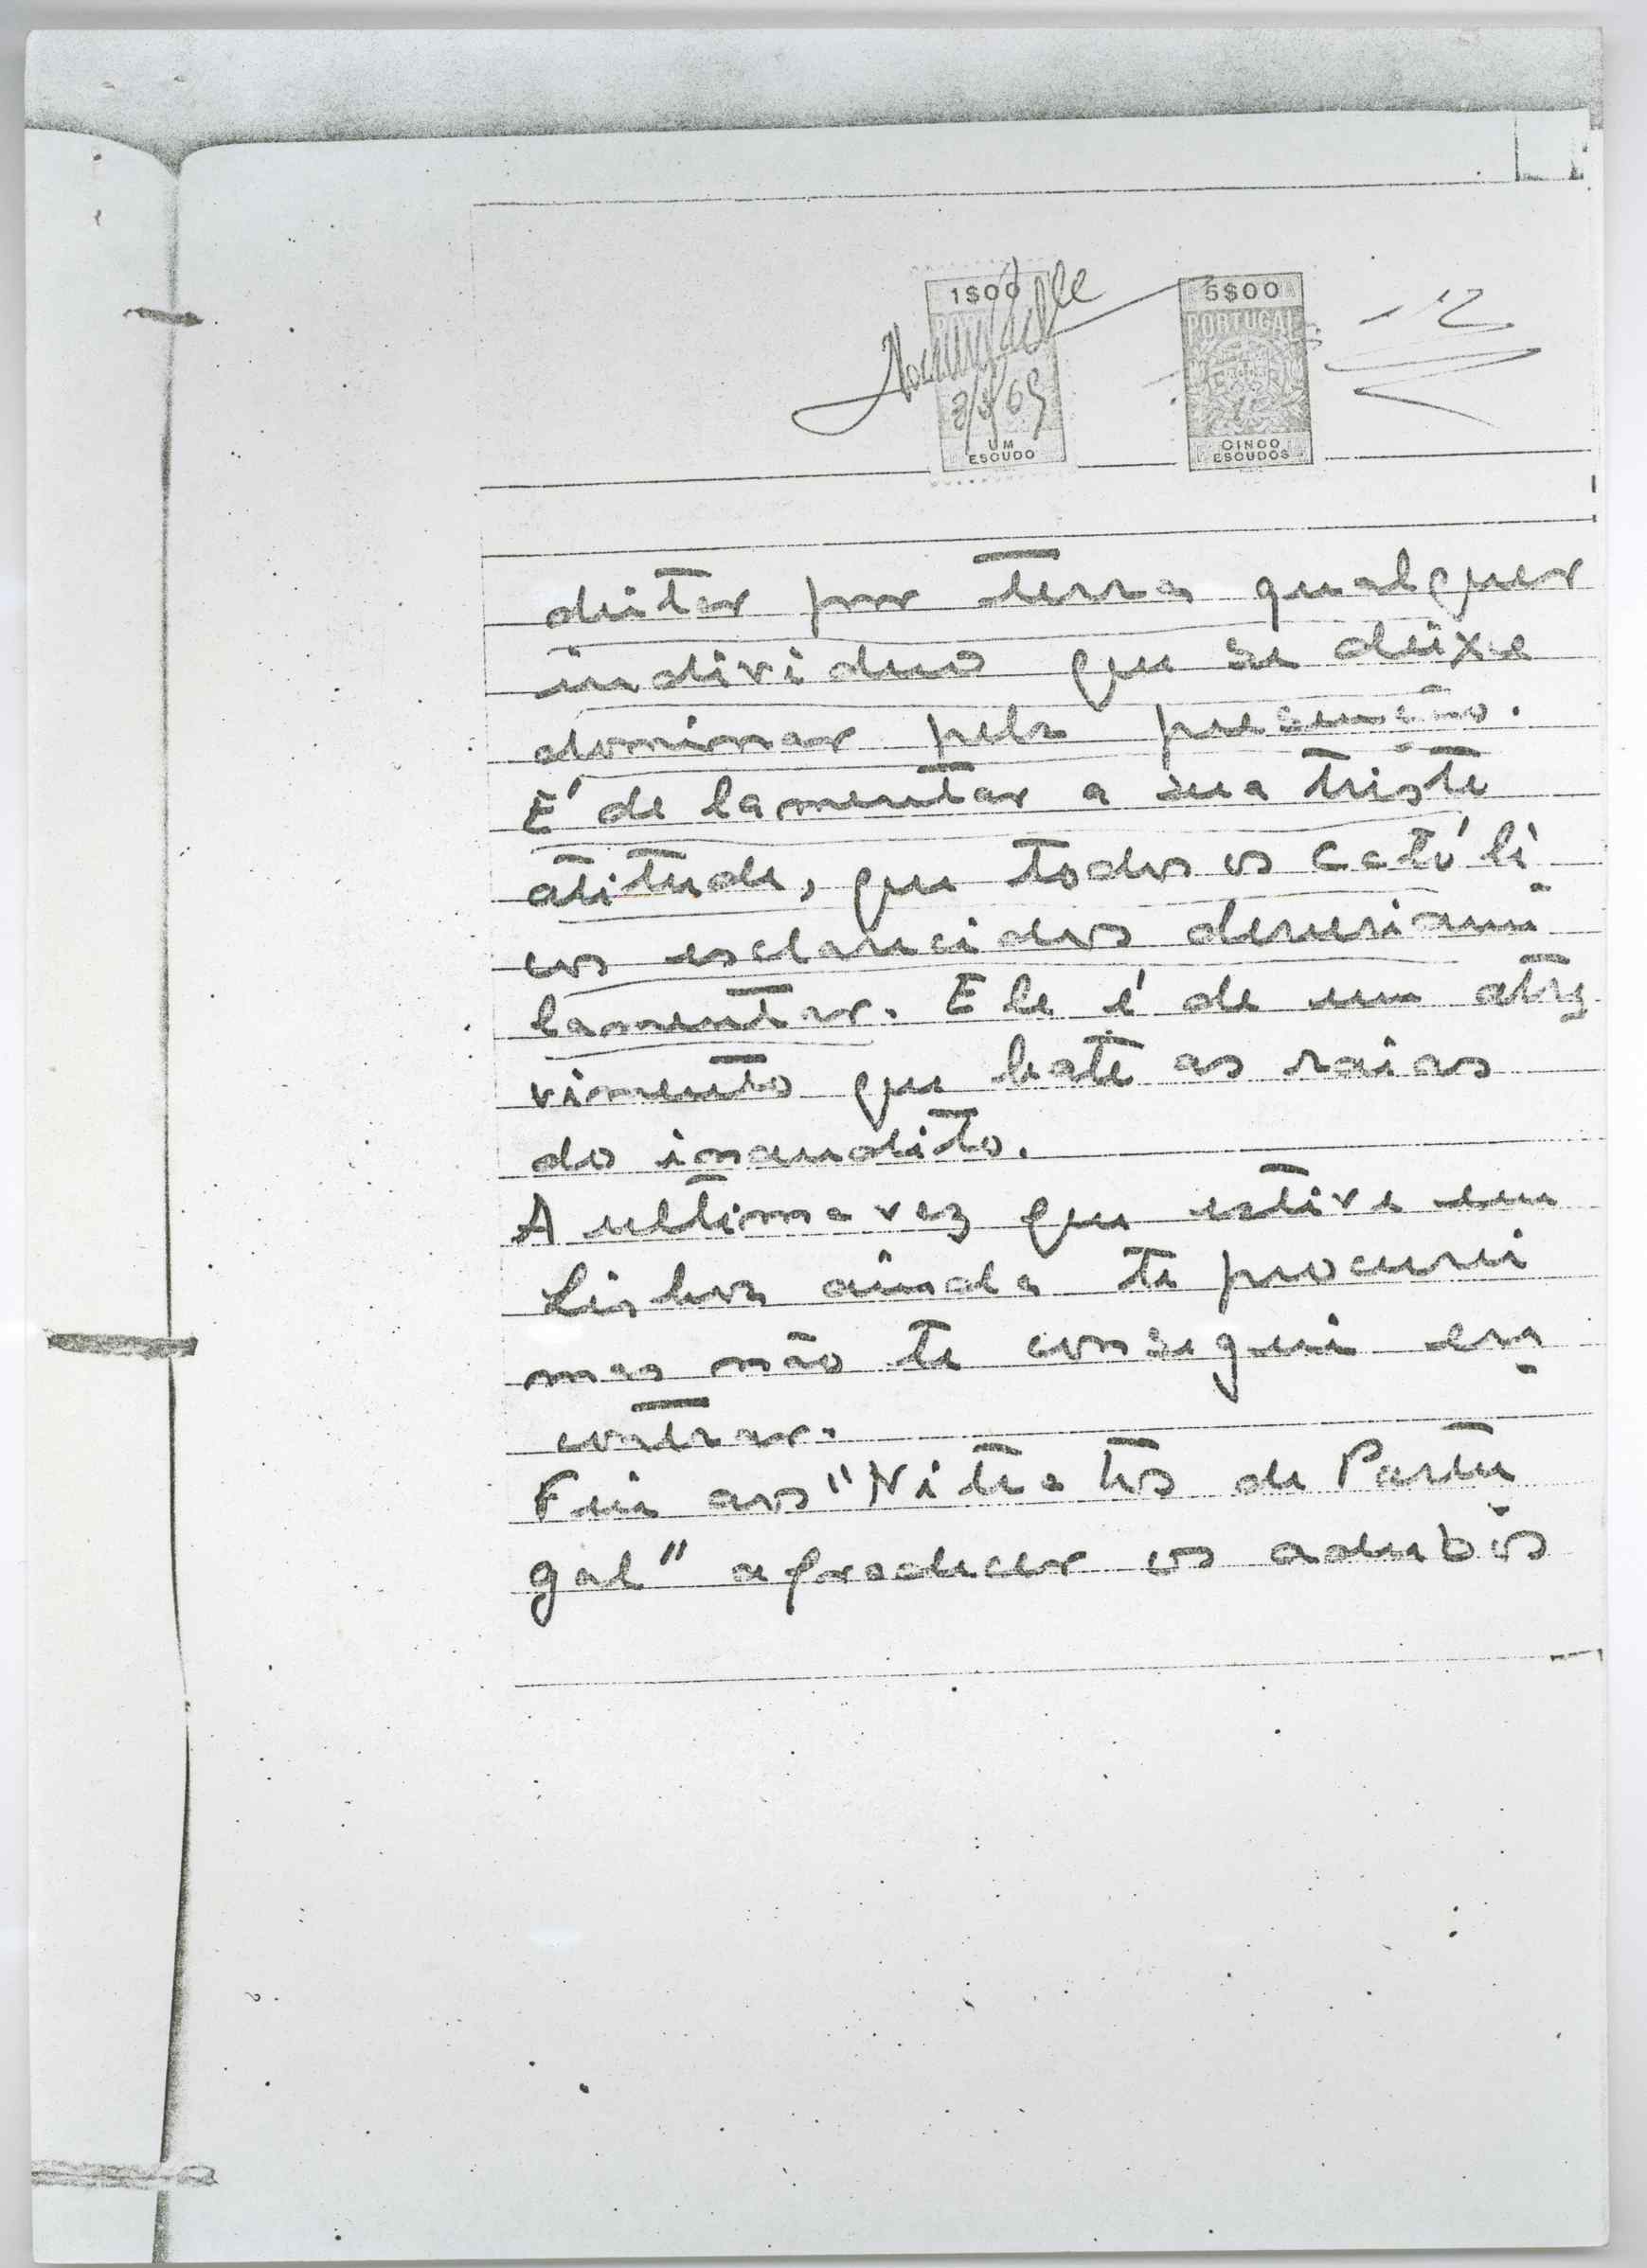 1$00
5$00
PORTUGAL
8/5/69
UM
ESCUDO
CINCO
ESCUDOS
deitar por terra qualquer
individuo que se deixe
dominar pela presunção.
É de lamentar a sua triste
atitude, que todos os católi-
cos esclarecidos deveriam
lamentar. Ele é de um atre-
vimento que bate as raias
do inaudito.
A ultima vez que estive em
Lisboa ainda te procurei
mas não te consegui en-
contrar.
Fui aos "Nitratos de Portu-
gal" agradecer os adubos